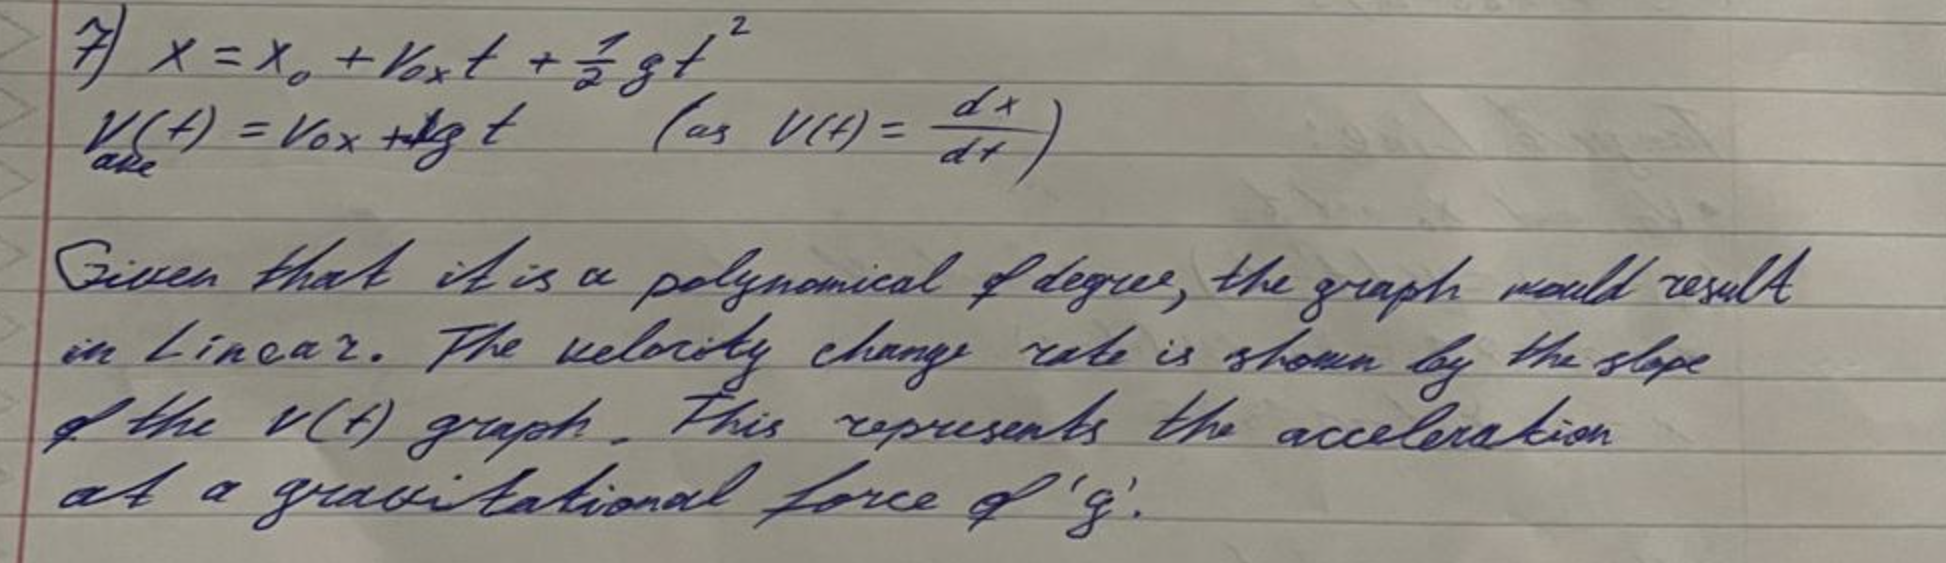 7) x = x₀ + v₀ₓt + ½gt²
V(t) = V₀ₓ + gt (as V(t) = dx/dt)
ave
Given that it is a polynomical of degree, the graph would result
in Linear. The velocity change rate is shown by the slope
of the v(t) graph. This represents the acceleration
at a gravitational force of 'g'.